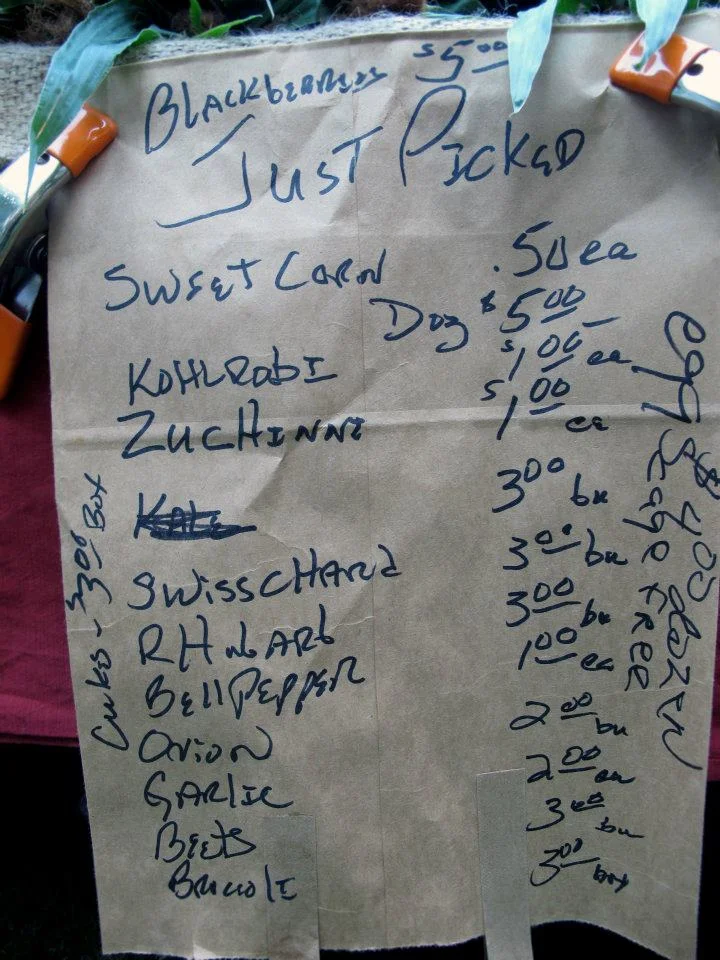 BLACKBERRIES $5.00
JUST PICKED
SWEET CORN .50 ea
Doz $5.00
KOHLRObI $1.00 ea
ZUCHINNI $1.00 ea
KALE 3.00 bu
SWISSCHARd 3.00 bu
RHubARb 3.00 bu
BEllPEPPER 1.00 ea
ONiON 2.00 bu
GARLIC 2.00 ea
BEEtS 3.00 bu
BROCOlI 3.00 box
Cukes - $3.00 Box
eggs $4.00 dozen
Cage FREE